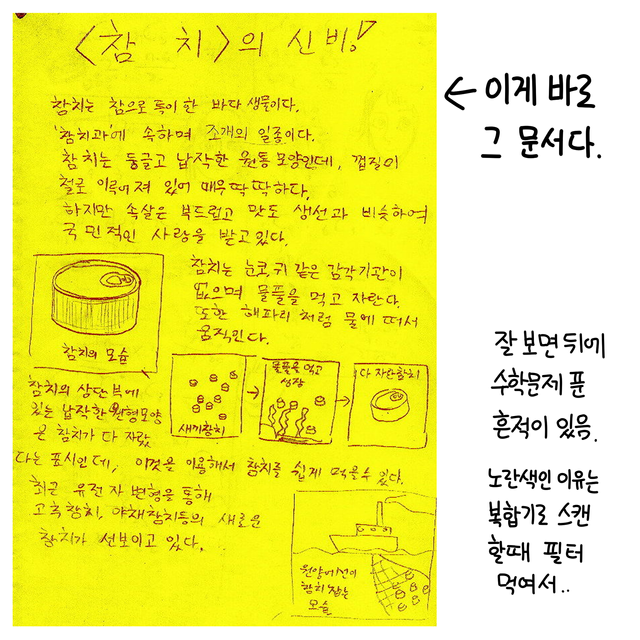 <참 치>의 신비!
참치는 참으로 특이 한 바다 생물이다.
'참치과'에 속하며 조개의 일종이다.
참치는 둥글고 납작한 원통모양인데, 껍질이
철로 이루어져 있어 매우 딱딱하다.
하지만 속살은 부드럽고 맛도 생선과 비슷하여
국민적인 사랑을 받고있다.
참치는 눈,코,귀 같은 감각기관이
없으며 물풀을 먹고 자란다.
또한 해파리 처럼 물에 떠서
움직인다.
참치의 모습
새끼참치
물풀을 먹고
성장
다 자란참치
참치의 상단부에
있는 납작한 원형모양
은 참치가 다 자랐
다는 표시인데, 이것을 이용해서 참치를 쉽게 먹을수 있다.
최근 유전자 변형을 통해
고추참치, 야채참치등의 새로운
참치가 선보이고 있다.
원양어선이
참치 잡는
모습
← 이게 바로
그 문서다.
잘 보면 뒤에
수학문제 푼
흔적이 있음.
노란색인 이유는
복합기로 스캔
할때 필터
먹여서..